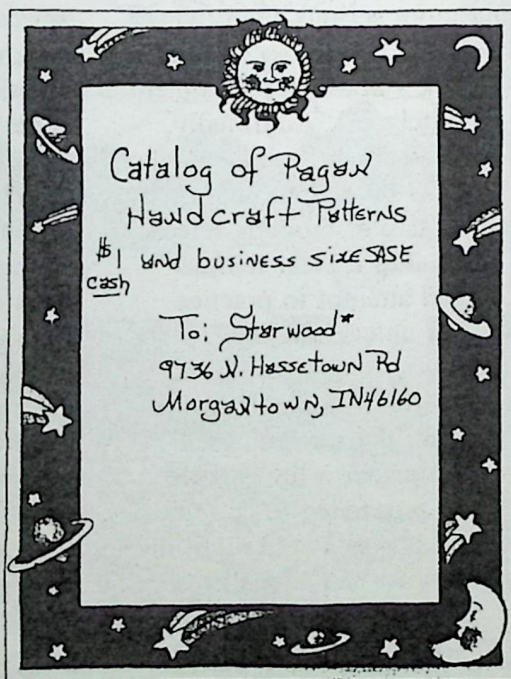 Catalog of Pagan
Handcraft Patterns
$1 and business size SASE
cash
To: Starwood*
9736 N. Hassetown Rd
Morgantown, IN 46160